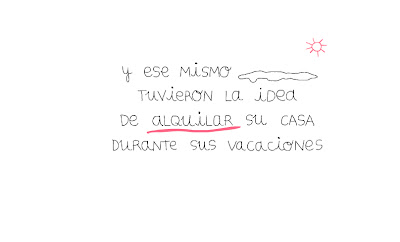 Y ESE MISMO
TUVIERON LA IDEA
DE ALQUILAR SU CASA
DURANTE SUS VACACIONES